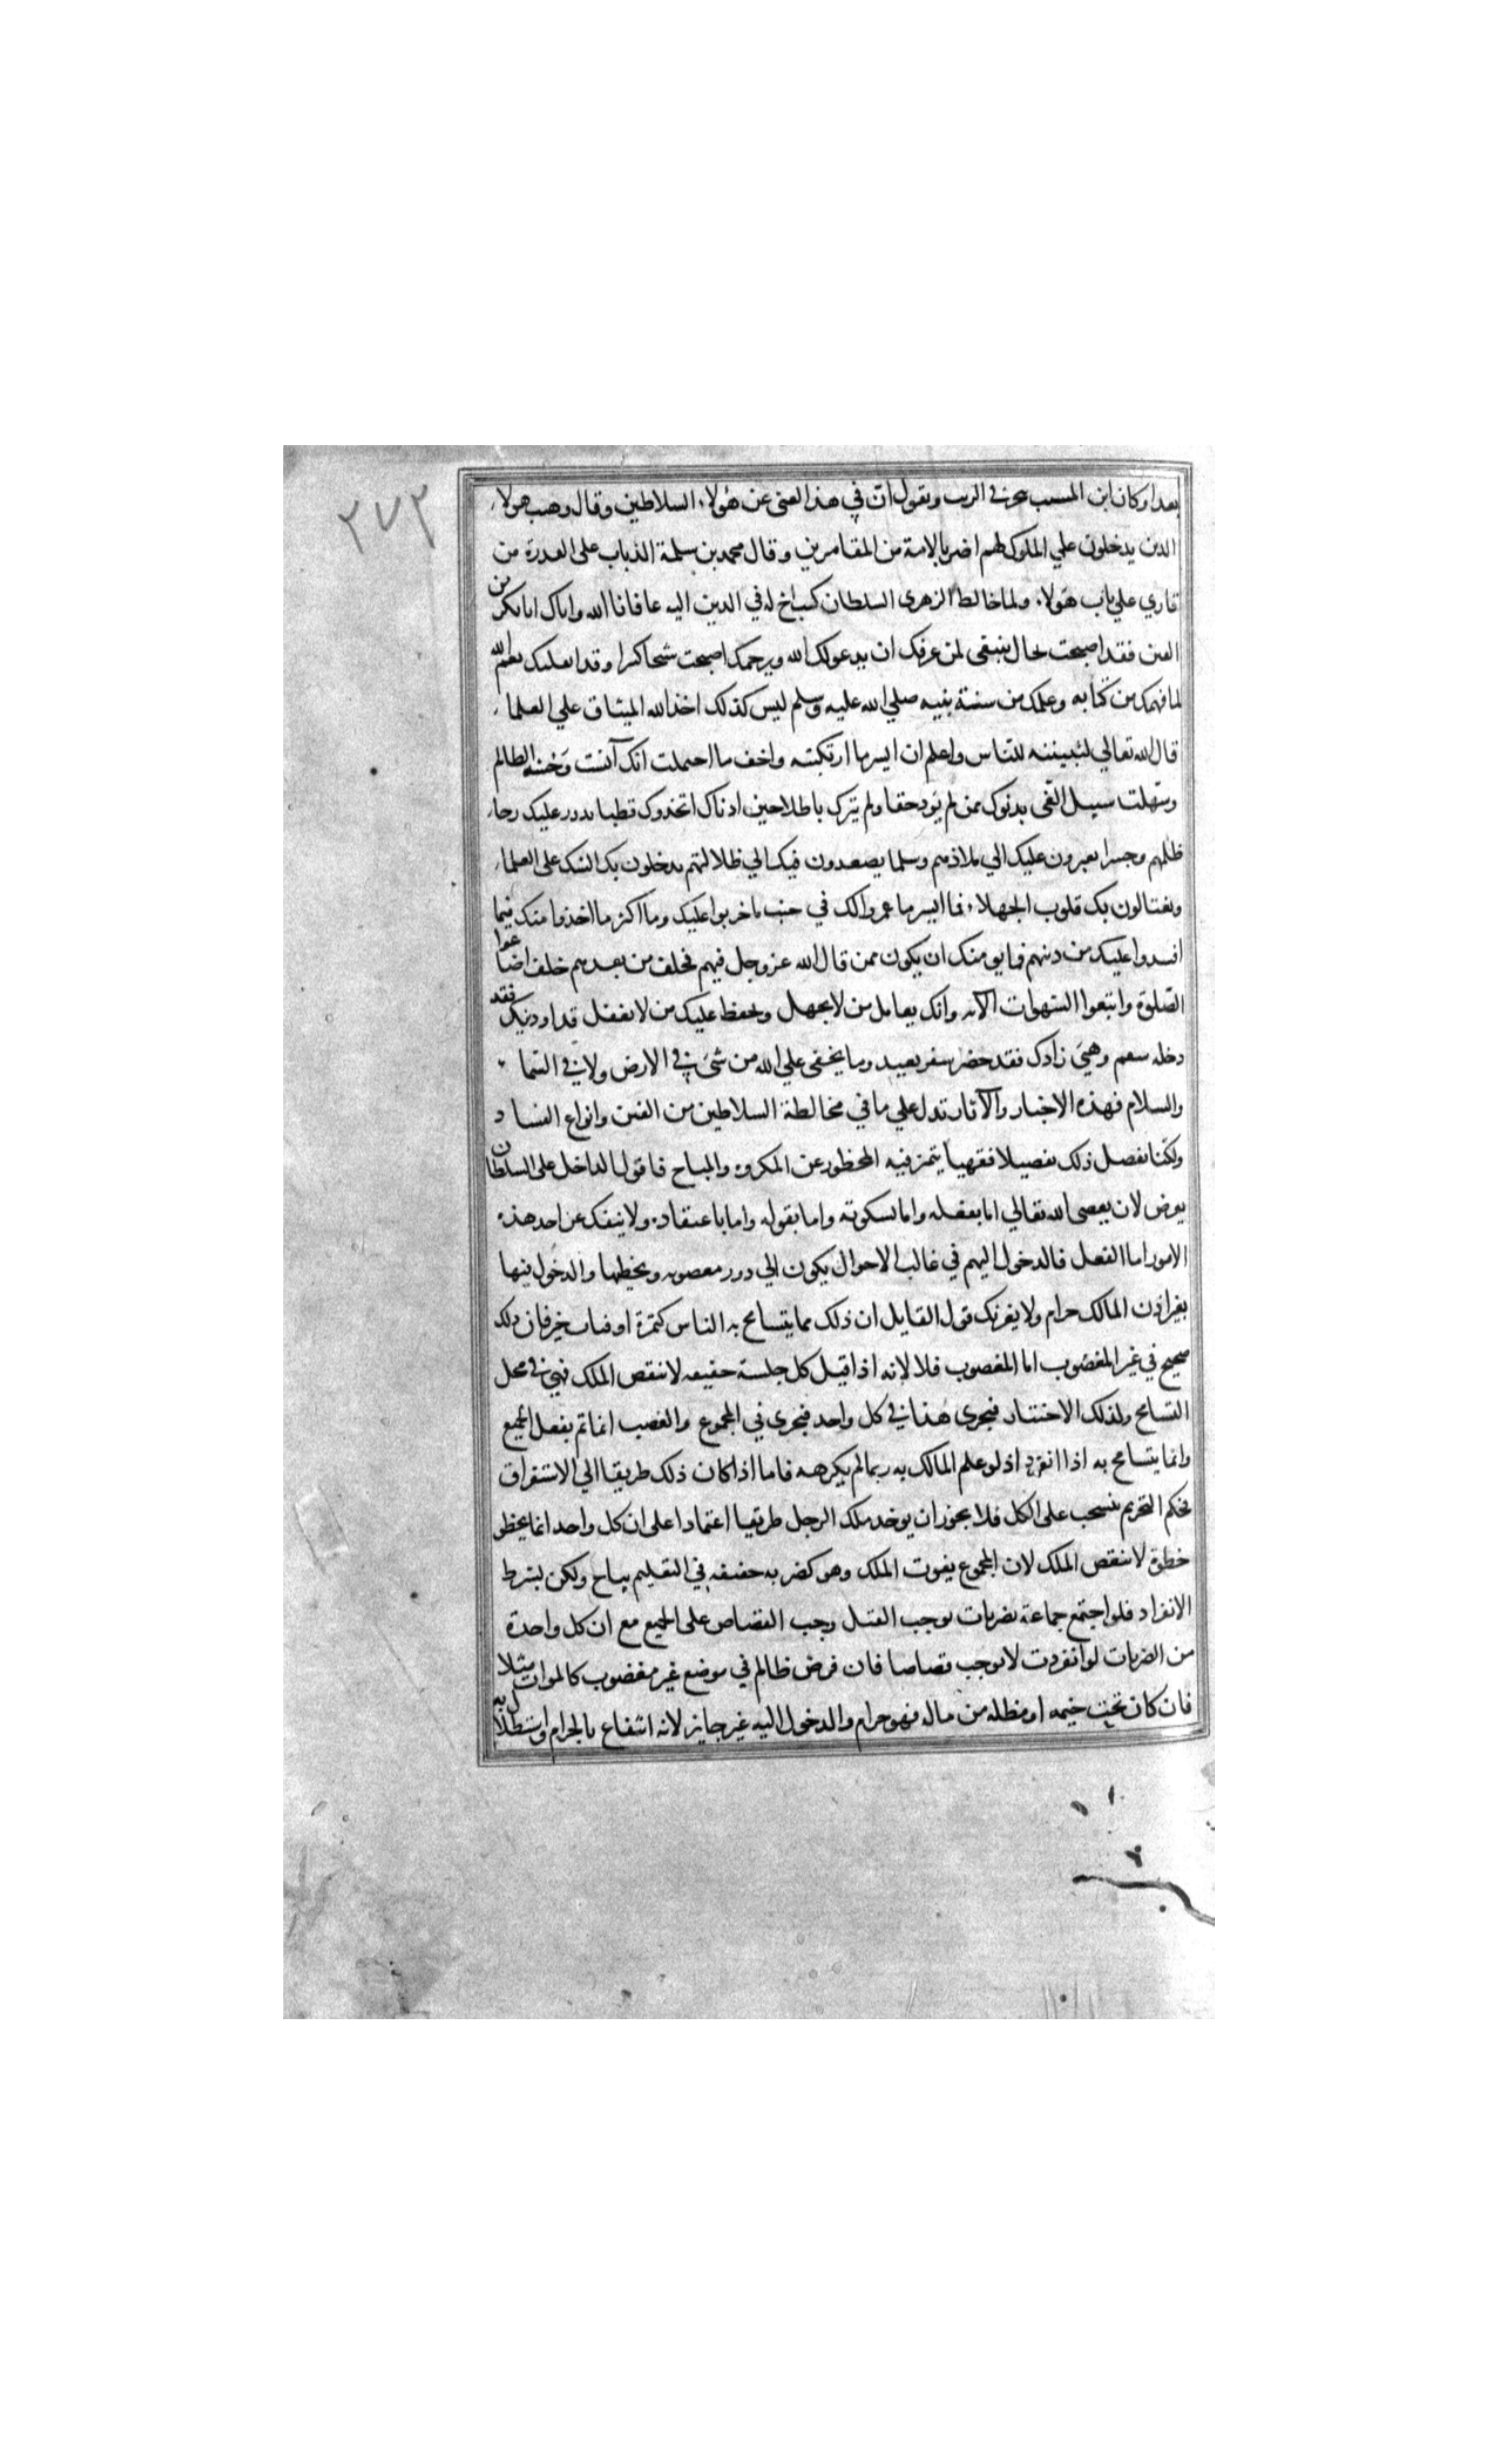 ٢٧٣
بعدا وكان ابن المسيب يتجر في الزيت ويقول ان في هذا لغنى عن هؤلاء السلاطين وقال وهب هولاء
الذين يدخلون علي الملوك لهم اضر بالامة من المقامرين وقال محمد بن سلمة الذباب على العدرة من
قاري علي باب هؤلاء ولما خالط الزهرى السلطان كتب اخ له في الدين اليه عافانا الله واياك ابا بكر من
الفتن فقد اصبحت بحال ينبغي لمن عرفك ان يدعو لك الله ويرحمك اصبحت شيخا كبيرا وقد اثقلتك نعم الله
لما فهمك من كتابه وعلمك من سنة نبيه صلي الله عليه وسلم ليس كذلك اخذ الله الميثاق علي العلماء
قال الله تعالي لتبيننه للناس واعلم ان ايسر ما ارتكبته واخف ما احتملت انك آنست وحشة الظالم
وسهلت سبيل الغي بدنوك ممن لم يؤد حقا ولم يترك باطلا حين ادناك اتخذوك قطبا تدور عليك رحاء
ظلمهم وجسرا يعبرون عليك الي بلائهم وسلما يصعدون فيك الي ظلالتهم يدخلون بك الشك على العلماء
ويغتالون بك قلوب الجهلاء فما ايسر ما عمروا لك في جنب ما خربوا عليك وما اكثر ما اخذوا منك فيما
افسدوا عليك من دينهم فما يومنك ان يكون ممن قال الله عز وجل فيهم فخلف من بعدهم خلف اضاعوا
الصلوة واتبعوا الشهوات الآية وانك تعامل من لا يجهل ويحفظ عليك من لا يغفل فداو دينك فقد
دخله سقم وهيئ زادك فقد حضر سفر بعيد وما يخفى علي الله من شئ في الارض ولا في السماء
والسلام فهذه الاخبار والآثار تدل علي ما في مخالطة السلاطين من الفتن وانواع الفساد
ولكنا نفصل ذلك تفصيلا فقهيا يتميز فيه المحظور عن المكروه والمباح فاقول الداخل على السلطان
يعرض لان يعصى الله تعالي اما بفعله واما بسكوته واما بقوله واما باعتقاده ولا ينفك عن احد هذه
الامور اما الفعل فالدخول اليهم في غالب الاحوال يكون الي دور مغصوبه وتخطيها والدخول فيها
بغير اذن المالك حرام ولا يغرنك قول القايل ان ذلك مما يتسامح به الناس كتمرة او فتات خبز فان ذلك
صحيح في غير المغصوب اما المغصوب فلا لانه اذا قيل كل جلسة خفيفه لا تنقص الملك فهي في محل
التسامح وكذلك الاجتياز فيجرى هذا في كل واحد فيجرى في المجموع والغصب انما تم بفعل الجميع
وانما يتسامح به اذا انفرد اذ لو علم المالك به ربما لم يكرهه فاما اذا كان ذلك طريقا الي الاستغراق
فحكم التحريم ينسحب على الكل فلا يجوز ان يوخذ ملك الرجل طريقا اعتمادا على ان كل واحد انما يخطو
خطوة لا تنقص الملك لان المجموع يفوت الملك وهو كضربه خفيفه في التعليم يباح ولكن بشرط
الانفراد فلو اجتمع جماعة بضربات توجب القتل وجب القصاص على الجميع مع ان كل واحدة
من الضربات لو انفردت لا توجب قصاصا فان فرض ظالم في موضع غير مغضوب كالموات مثلا
فان كان تحت خيمه او مظله من ماله فهو حرام والدخول اليه غير جايز لانه انتفاع بالحرام واستظلال به